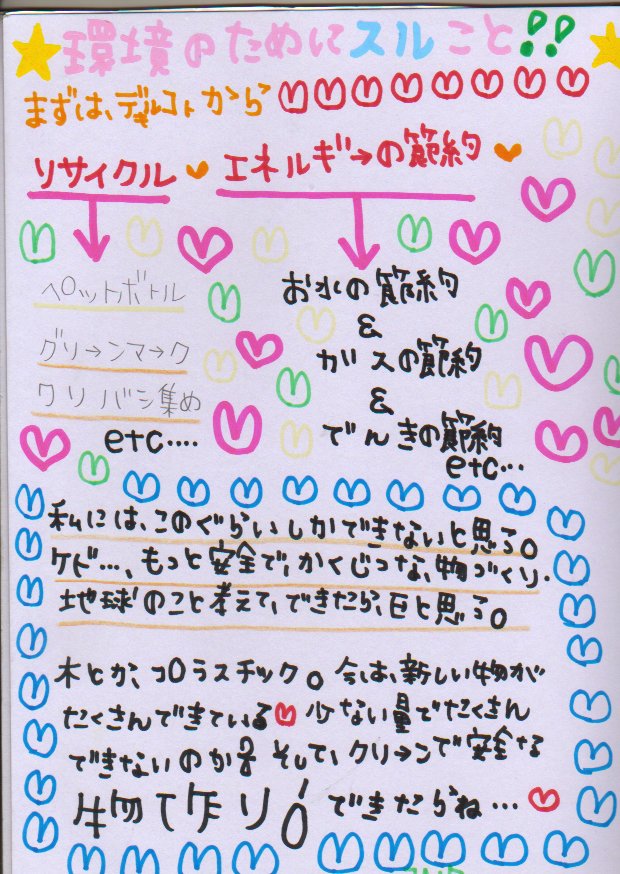 環境のためにスルこと!!
まずは、デキルコトから
リサイクル ♥ エネルギ→の節約 ♥
ペットボトル
グリ→ンマ→ク
ワリバシ集め
etc....
お水の節約
&
ガスの節約
&
でんきの節約
etc...
私には、このぐらいしかできないと思う。
ケド…、もっと安全で、かくじつな、物づくり.
地球のこと考えて、できたら、Eと思う。
木とか、プラスチック。今は、新しい物が
たくさんできている♥少ない量でたくさん
できないのか? そして、クリ→ンで安全な
物て作り! できたらね…♥